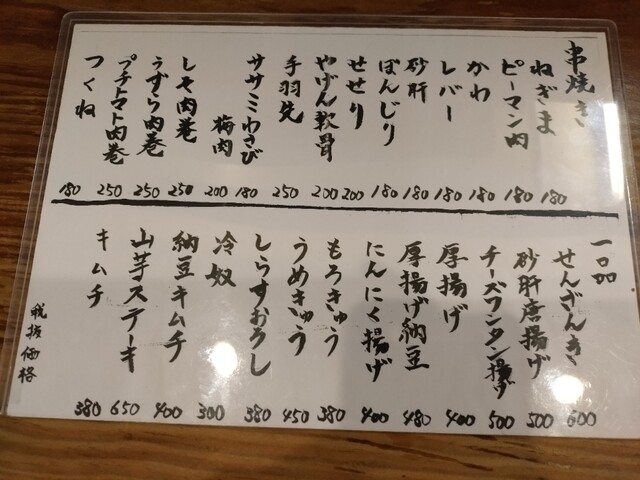 串焼き
ねぎま 180
ピーマン肉 180
かわ 180
レバー 180
砂肝 180
ぼんじり 180
せせり 200
やげん軟骨 200
手羽先 250
ササミわさび 180
梅肉 200
しそ肉巻 250
うずら肉巻 250
プチトマト肉巻 250
つくね 180
一品
せんざんき 600
砂肝唐揚げ 500
チーズワンタン揚げ 500
厚揚げ 400
厚揚げ納豆 480
にんにく揚げ 400
もろきゅう 380
うめきゅう 450
しらすおろし 380
冷奴 300
納豆キムチ 400
山芋ステーキ 650
キムチ 380
税抜価格